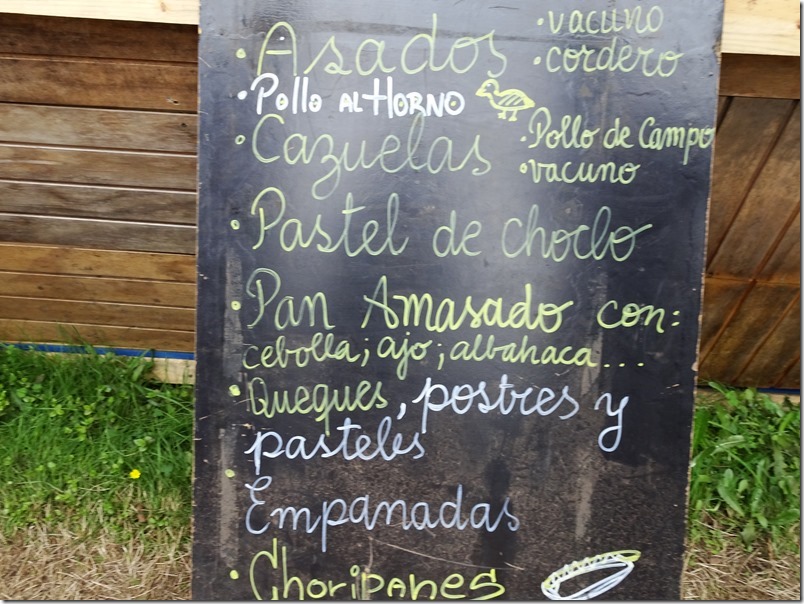 · Asados · vacuno
· cordero
· Pollo AL HORNO
· Cazuelas · Pollo de Campo
· vacuno
· Pastel de choclo
· Pan Amasado con:
cebolla; ajo; albahaca...
· Queques, postres y
pasteles
· Empanadas
· Choripanes